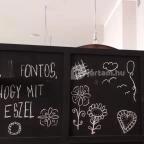 FONTOS,
HOGY MIT
ESZEL
jartam.hu